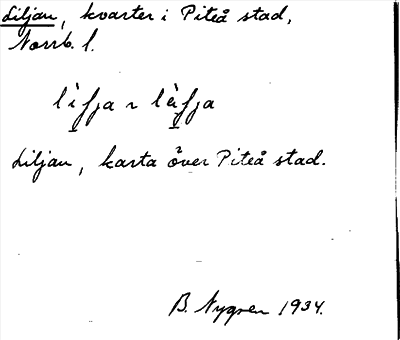 Liljan, kvarter i Piteå stad,
Norrb. l.
Liljan, karta över Piteå stad.
B. Nygren 1934.